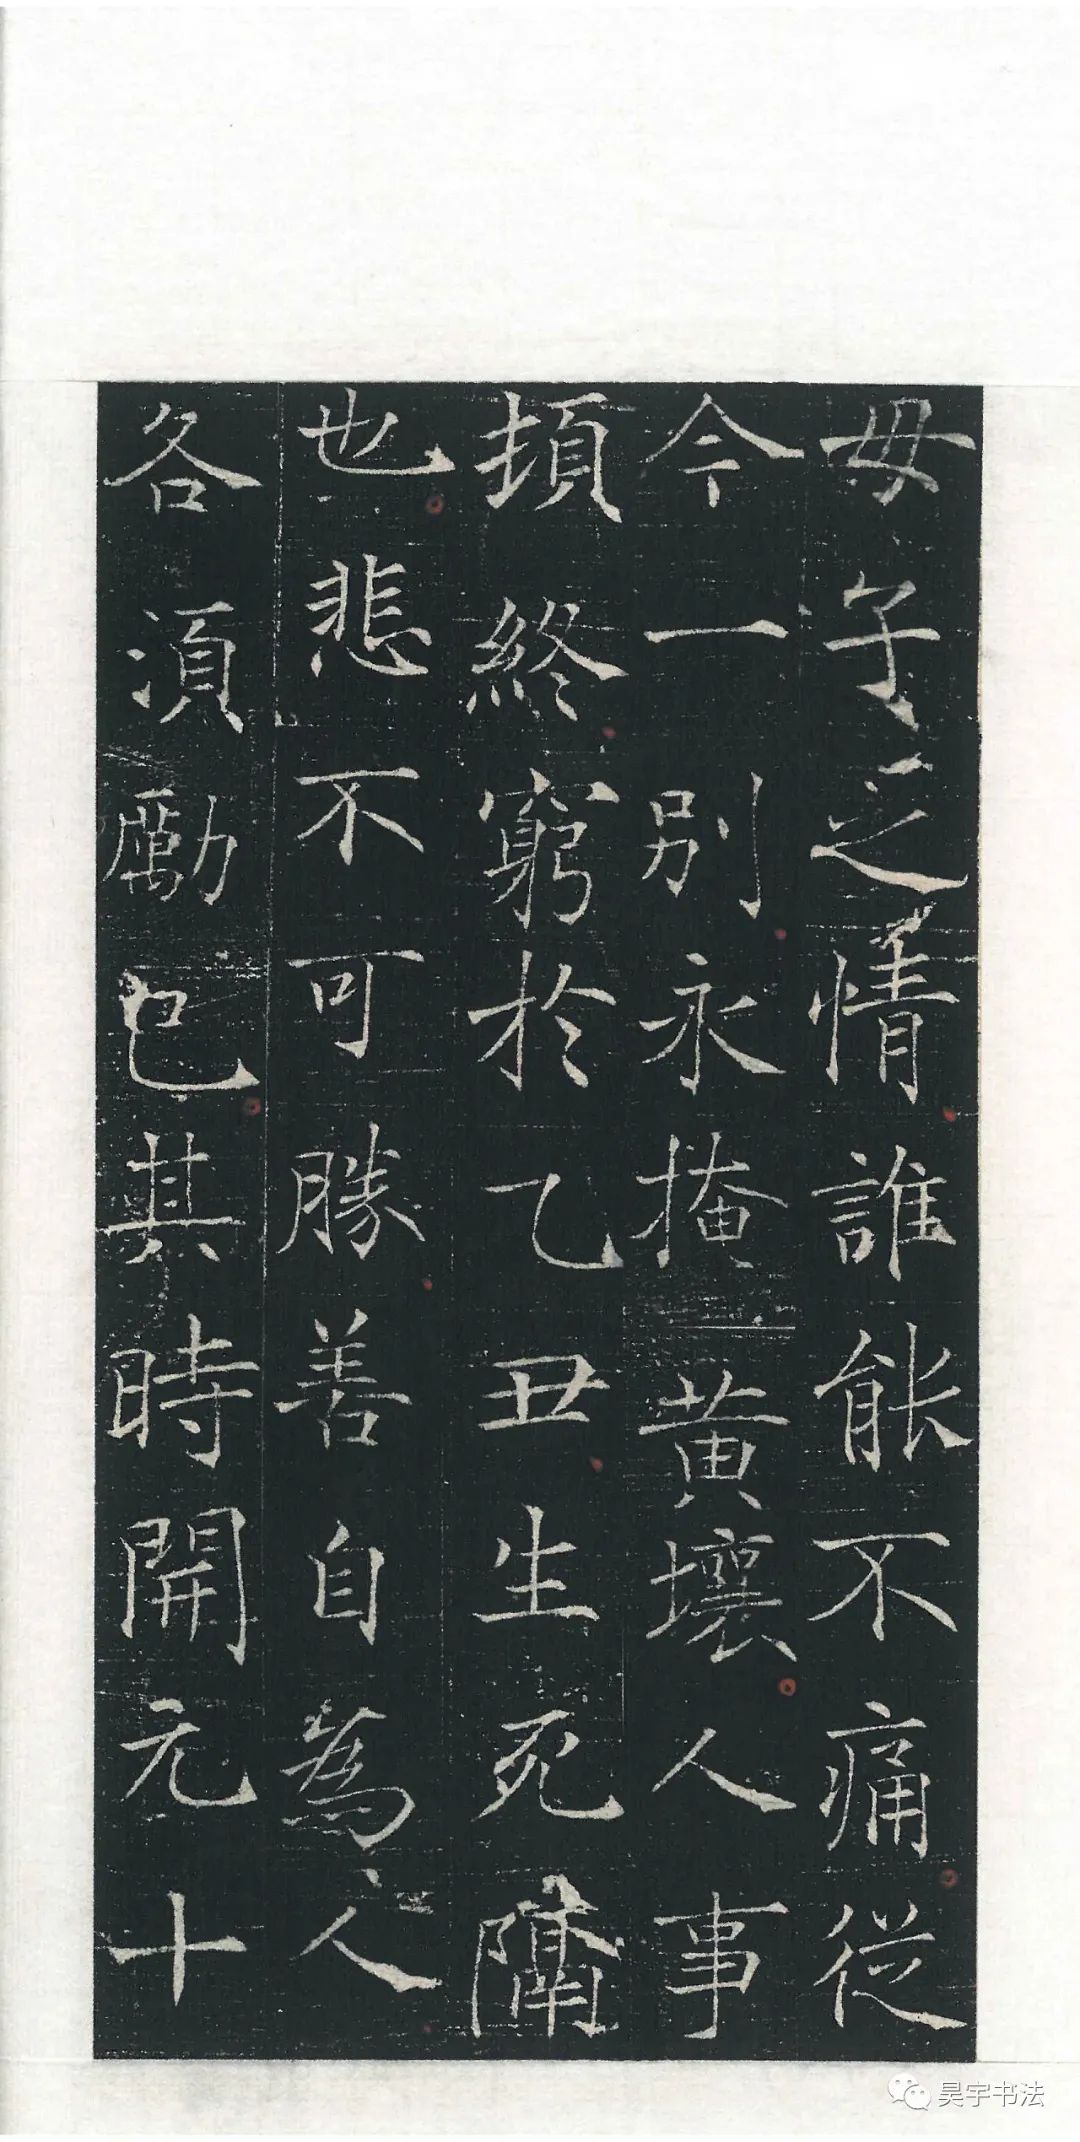 母子之情誰能不痛從
今一別永掩黄壤人事
頓終窮於乙丑生死隔
也悲不可勝善自為人
各須勵己其時開元十
昊宇书法